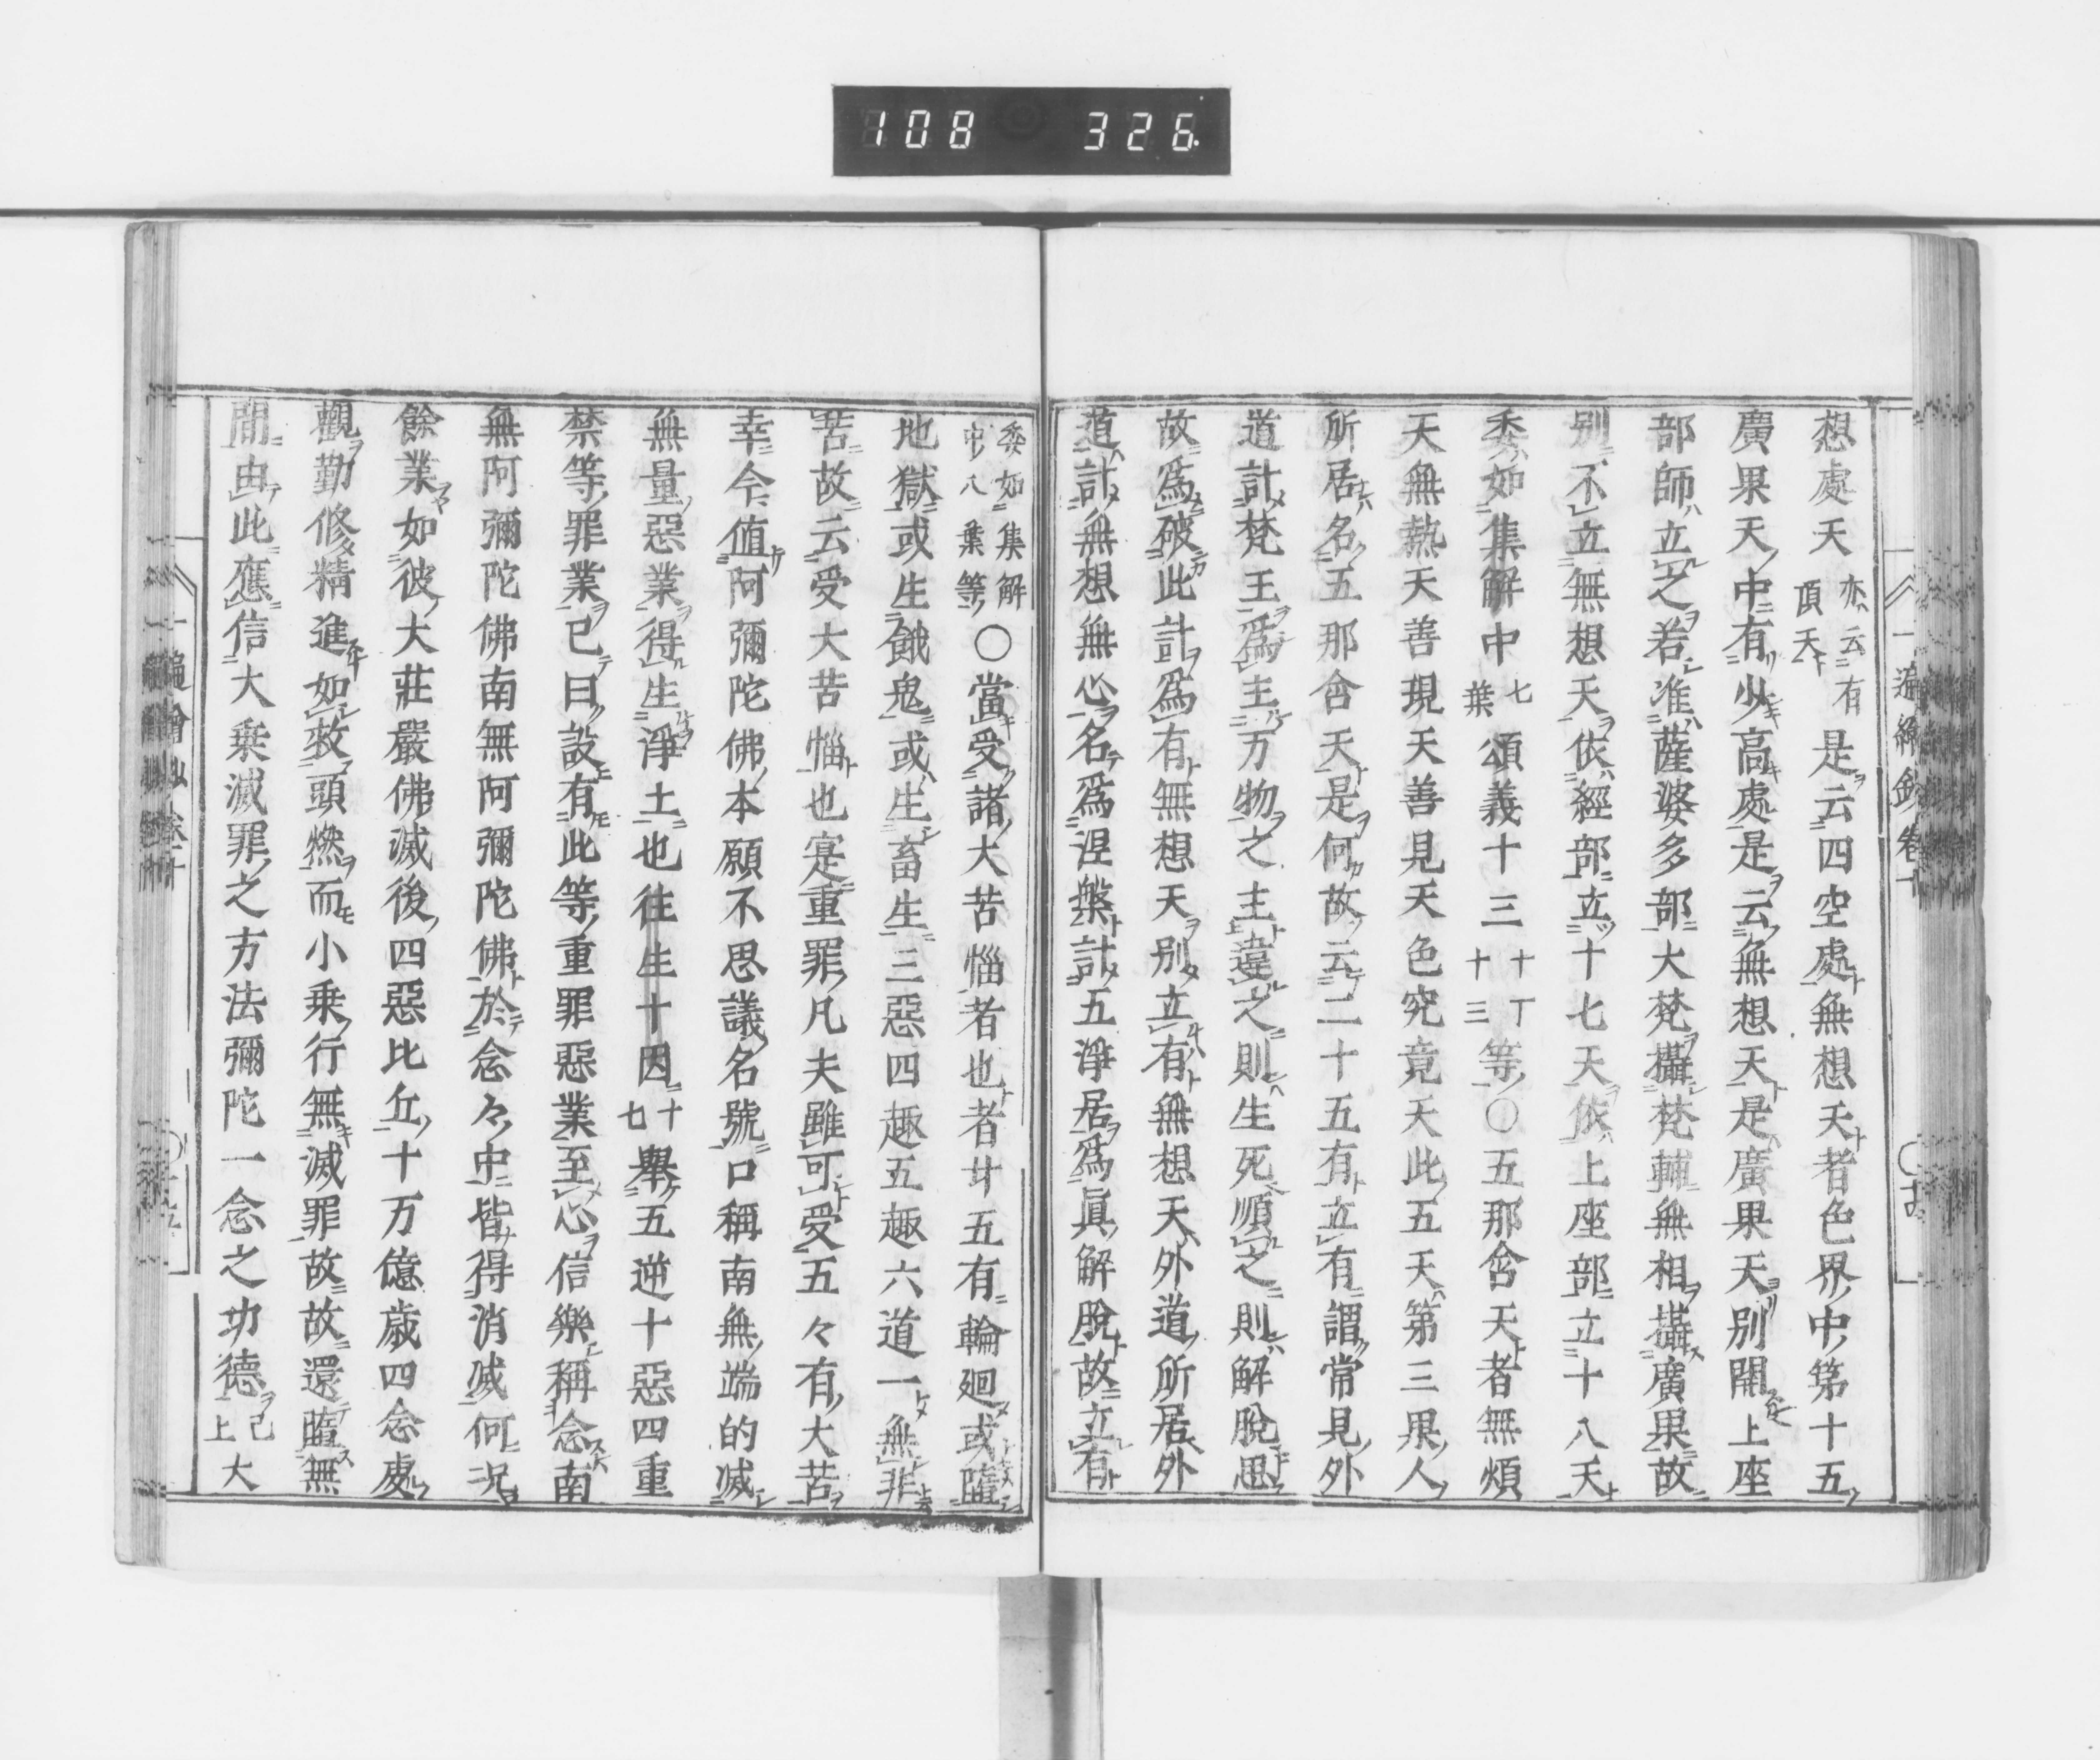 108 326
想處天亦云有頂天是云四空處無想天者色界中第十五
廣果天中有少高處是云無想天是廣果天別開上座
部師立之若准薩婆多部大梵攝梵輔無相攝廣果故
別不立無想天依經部立十七天依上座部立十八天
委如集解中七葉頌義十三十丁十三等○五那含天者無煩
天無熱天善現天善見天色究竟天此五天第三果人
所居名五那含天是何故云二十五有立有謂常見外
道計梵王爲主万物之主違之則生死順之則解脫思
故爲破此計爲有無想天別立有無想天外道所居外
道計無想無心名爲涅槃計五淨居爲眞解脫故立有
委如集解中八葉等○當受諸大苦惱者也者廿五有輪廻或墮
地獄或生餓鬼或生畜生三惡四趣五趣六道一無非
苦故云受大苦惱也寔重罪凡夫雖可受五々有大苦
幸今値阿彌陀佛本願不思議名號口稱南無端的滅
無量惡業得生淨土也往生十因十七舉五逆十惡四重
禁等罪業已曰設有此等重罪惡業至心信樂稱念南
無阿彌陀佛南無阿彌陀佛於念々中皆得消滅何況
餘業如彼大莊嚴佛滅後四惡比丘十万億歲四念處
觀勤修精進如救頭燃而小乘行無滅罪故故還墮無
間由此應信大乘滅罪之方法彌陀一念之功德已上大